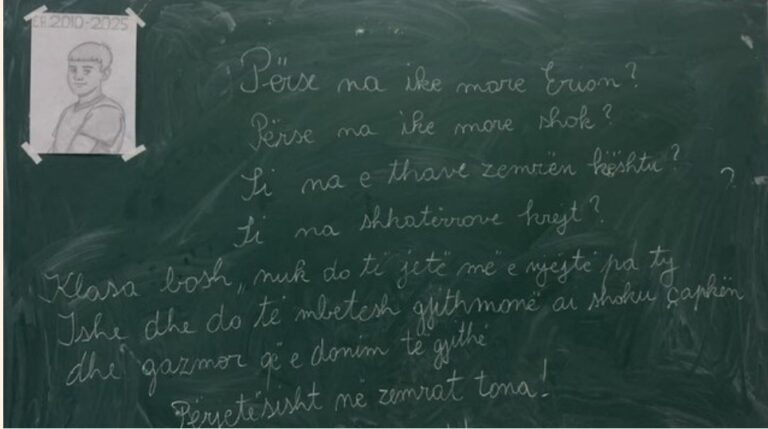 ER. 2010-2025
Përse na ike more Erion?
Përse na ike more shok?
Si na e thave zemrën kështu?
?
Si na shkatërrove krejt?
Klasa bosh, nuk do të jetë më e njejtë pa ty
Ishe dhe do të mbetesh gjithmonë ai shoku çapkën
dhe gazmor që e donim të gjithë
Përjetësisht në zemrat tona!